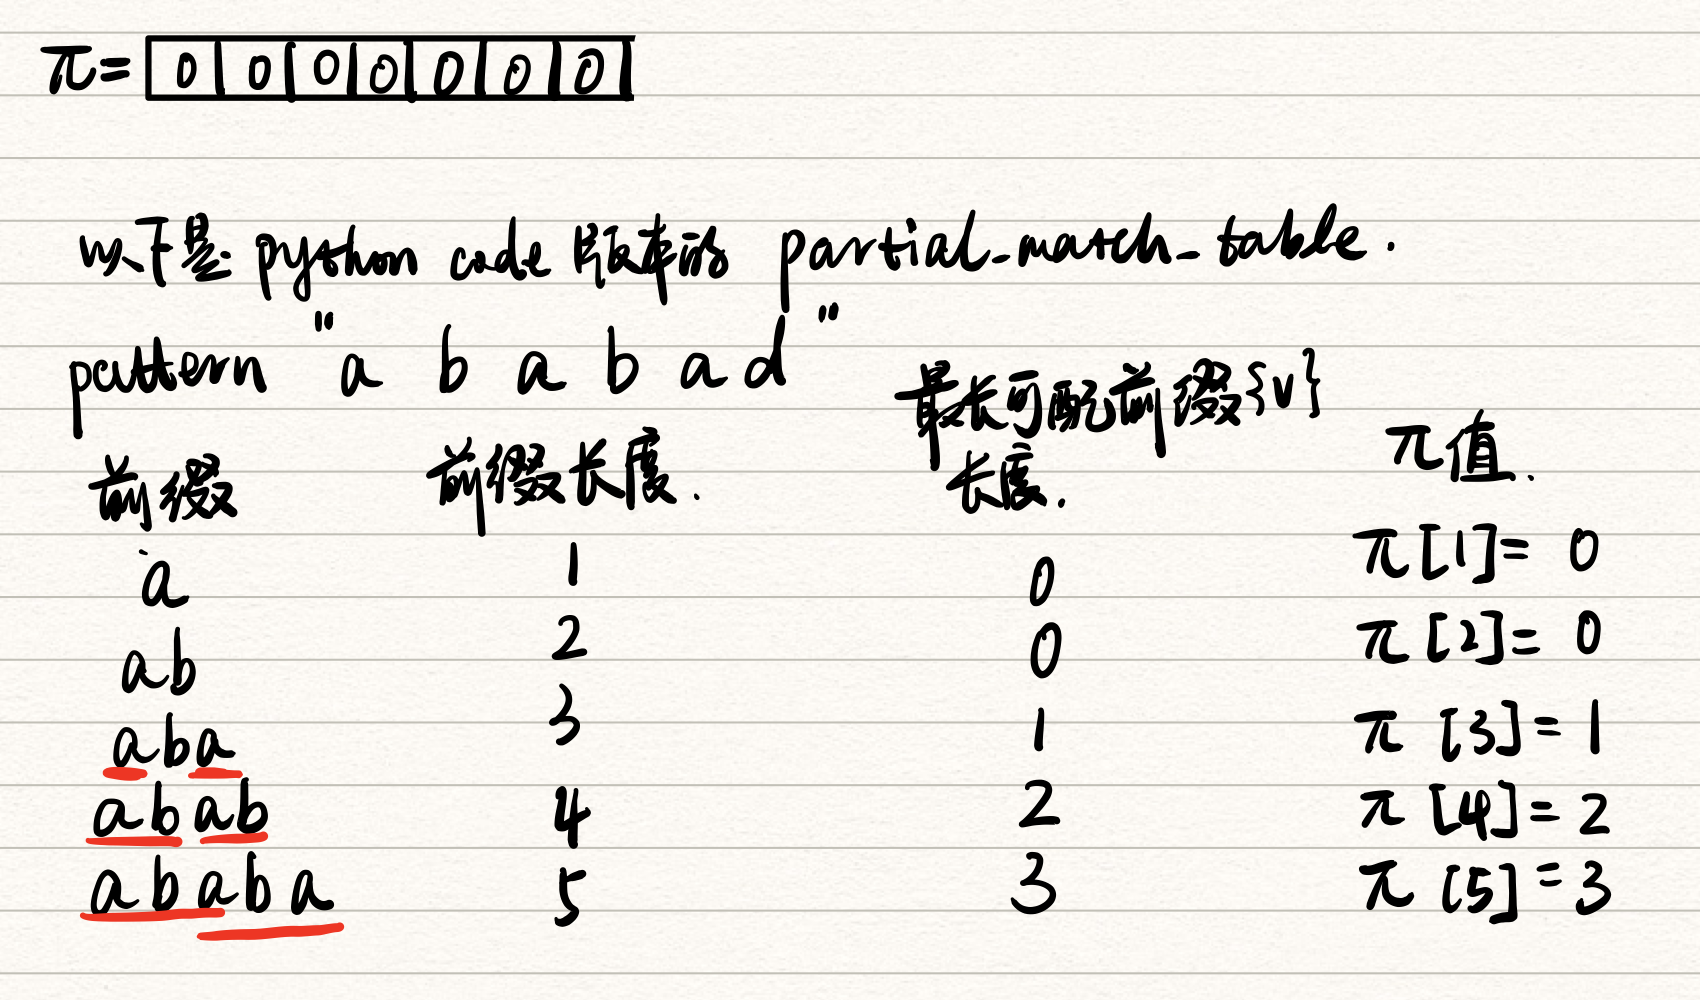 π= 0 0 0 0 0 0 0
以下是 python code 版本的 partial_match_table.
pattern "a b a b a d"
前缀 前缀长度. 最长可配前缀{v}长度. π值.
a 1 0 π[1]= 0
ab 2 0 π[2]= 0
aba 3 1 π[3]=1
abab 4 2 π[4]=2
ababa 5 3 π[5]=3